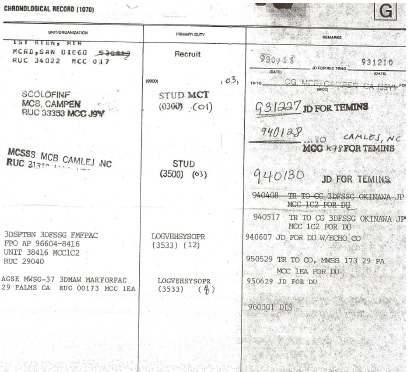 CHRONOLOGICAL RECORD (1070)
G
UNIT/ORGANIZATION
PRIMARY DUTY
REMARKS
MCRD, SAN DIEGO
RUC 34022 MCC 017
Recruit
931210
(DATE)
(DATE)
SCOLOFINF
MCB, CAMPEN
RUC 33353 MCC J9Y
STUD MCT
(0300) (01)
931227 JD FOR TEMINS
940128
CAMLEJ, NC
MCC K78 FOR TEMINS
MCSSS MCB CAMLEJ NC
STUD
(3500) (03)
940130 JD FOR TEMINS
940408 TR TO CG 3DFSSG OKINAWA JP
MCC 1C2 FOR DU
940517 TR TO CG 3DFSSG OKINAWA JP
MCC 1C2 FOR DU
3DSPTBN 3DFSSG FMFPAC
FPO AP 96604-8416
UNIT 38416 MCC1C2
RUC 29040
LOGVEHSYSOPR
(3533) (12)
940607 JD FOR DU W/ECHO CO
950529 TR TO CO, MWSS 173 29 PA
MCC 1EA FOR DU
AGSE MWSG-37 3DMAW MARFORPAC
29 PALMS CA RUC 00173 MCC 1EA
LOGVEHSYSOPR
(3533)
950629 JD FOR DU
960301 DIS